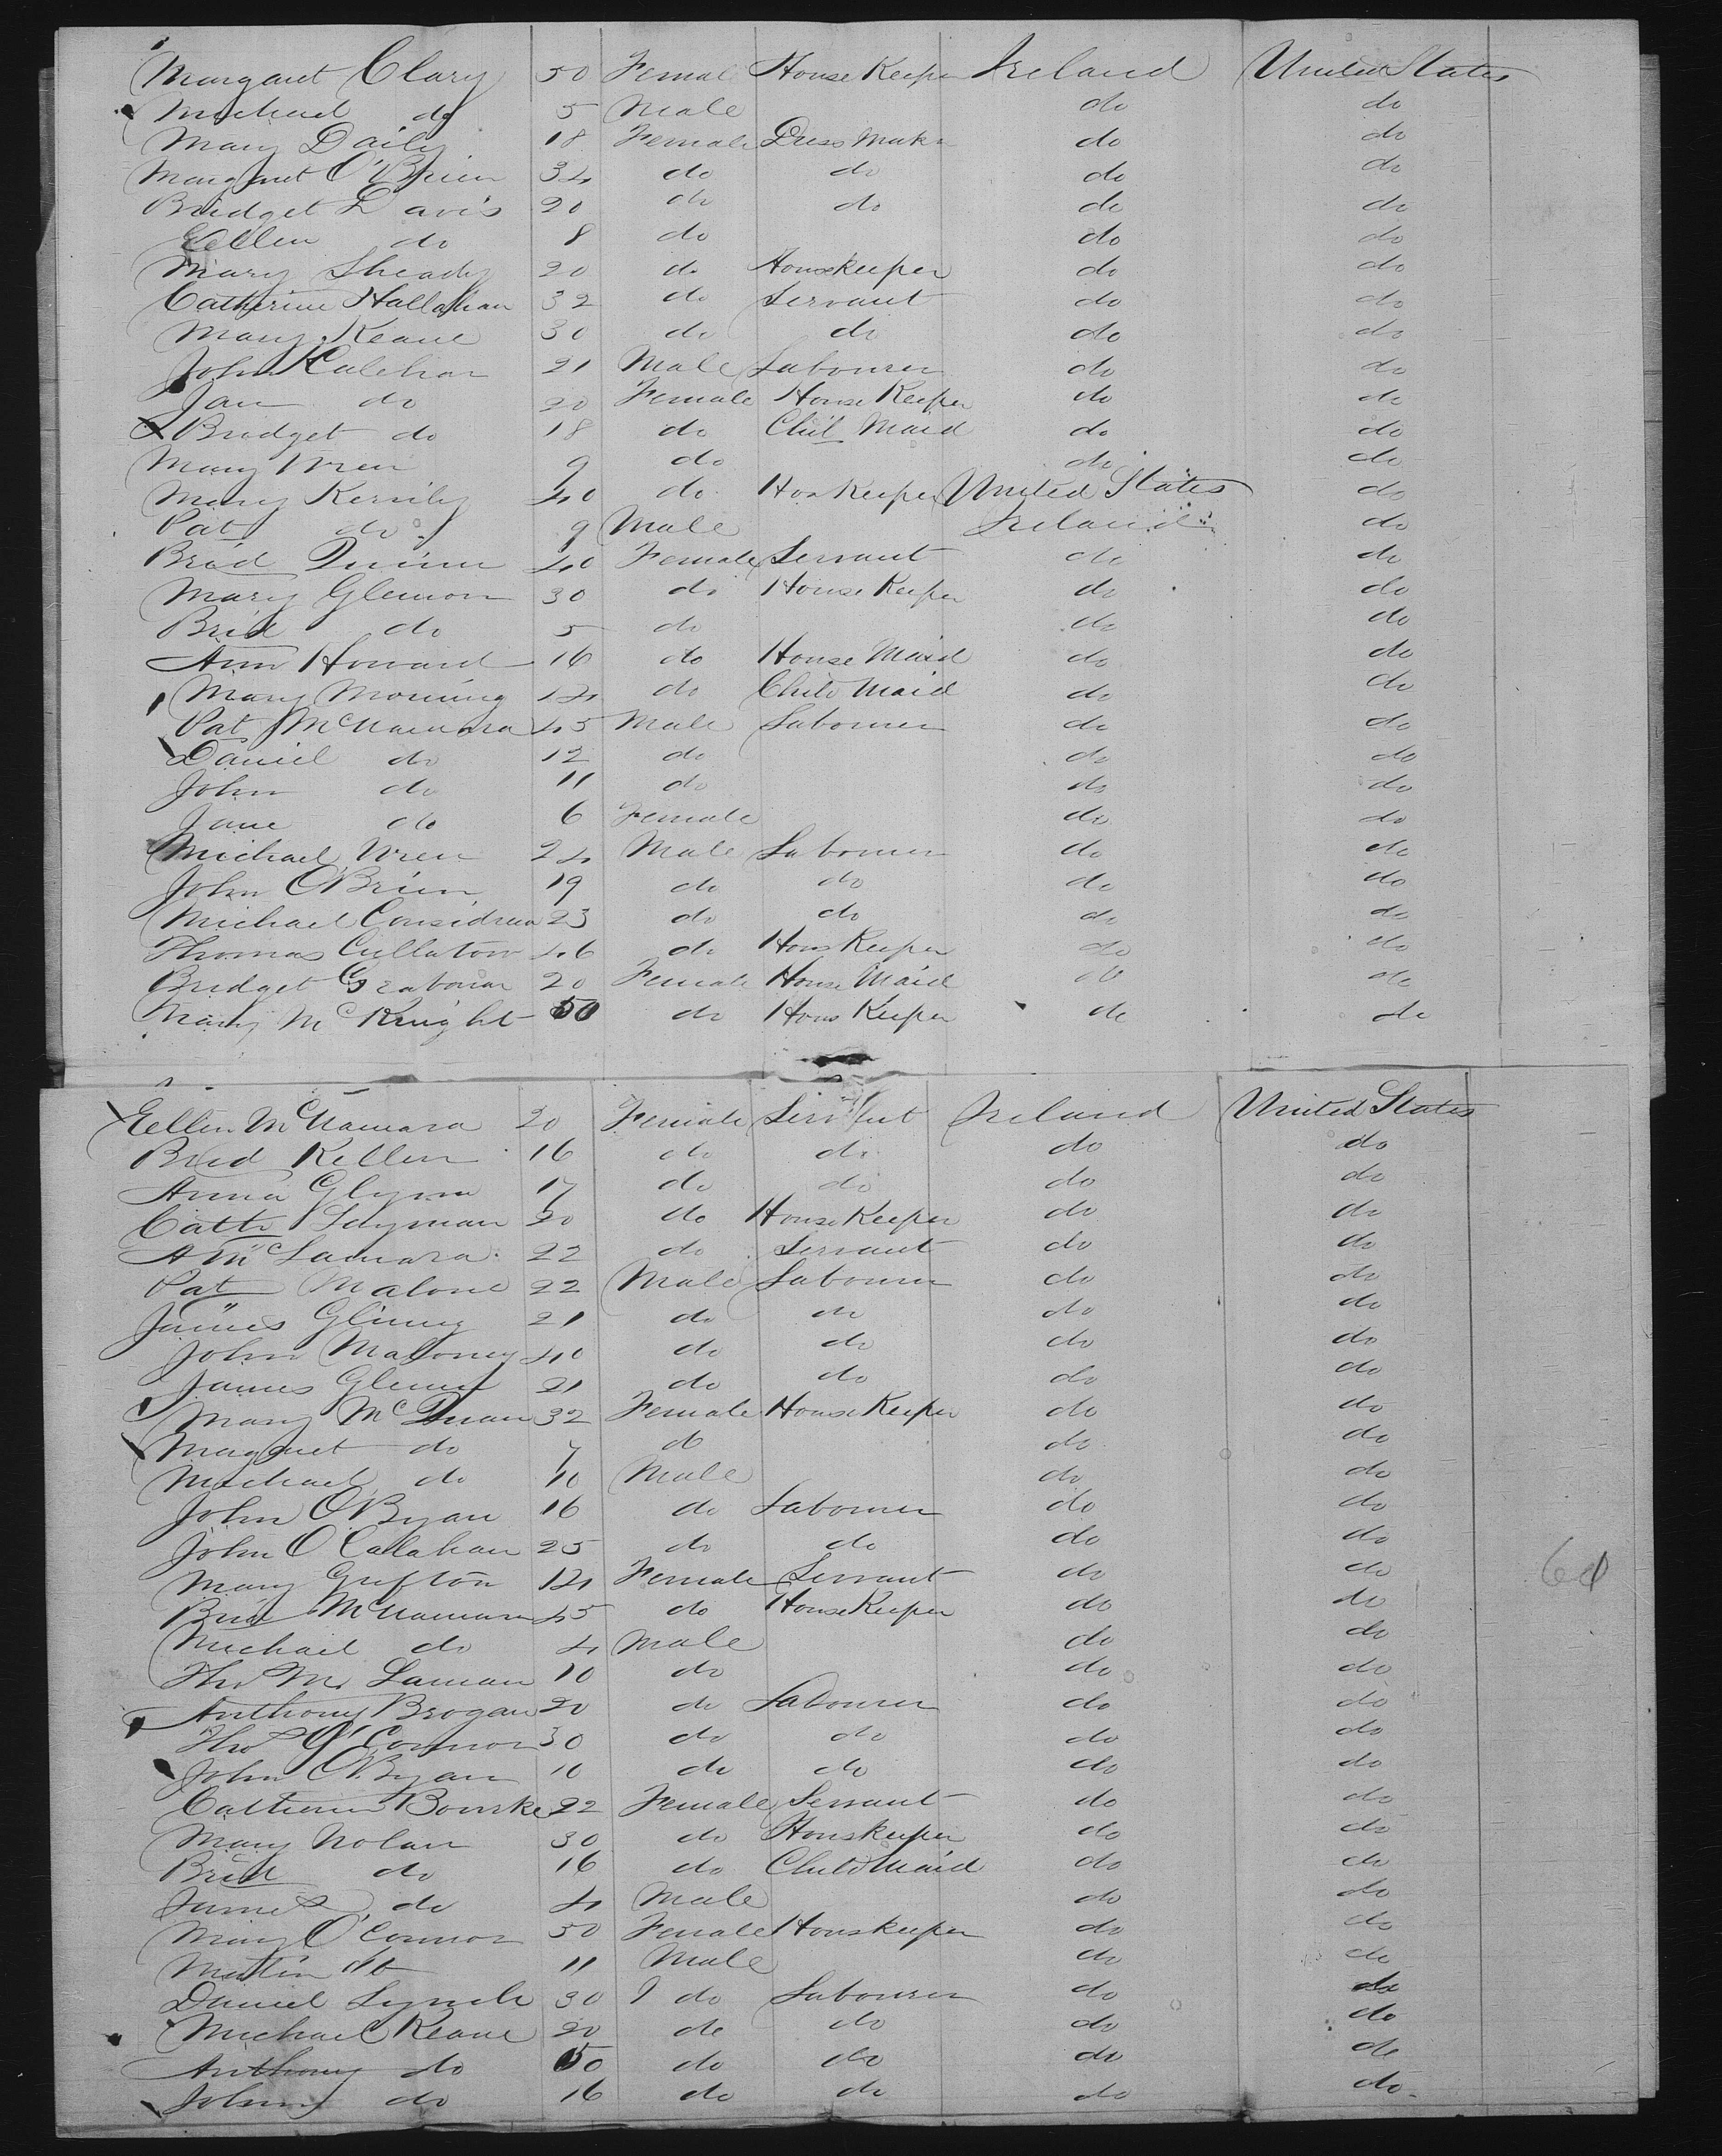 Margaret Clary 50 Femal House Keeper Ireland United States
Michael do 5 Male do do
Mary Daily 18 Female Dress Maker do do
Margaret O'Brien 34 do do do do
Bridget Davis 20 do do do do
Eellen do 8 do do do
Mary Sheady 20 do Housekeeper do do
Catherine Hallahan 32 do Servant do do
Mary Keane 30 do do do do
John Kalehan 21 Male Labourer do do
Jan do 20 Female House Keeper do do
Bridget do 18 do Chil Maid do do
Mary Wren 9 do do do
Mary Kerrily 40 do Hos Keeper United States do
Pat do 9 Male Ireland do
Brid Quinn 40 Female Servant do do
Mary Glennon 30 do House Keeper do do
Brid do 5 do do do
Ann Howard 16 do House Maid do do
Mary Morning 14 do Child Maid do do
Pat McNamara 45 Male Labourer do do
Daniel do 12 do do do
John do 11 do do do
Jane do 6 Female do do
Michael Wren 24 Male Labourer do do
John O'Brien 19 do do do do
Michael Considren 23 do do do do
Thomas Cullaton 46 do Hous Keeper do do
Bridget 20 Female House Maid do do
Mary McKnight 50 do Hous Keeper do do
Eellen McNamara 20 Female Servant Ireland United States
Brid Kellen 16 do do do do
Anna Glynn 17 do do do do
Cath Layman 20 do House Keeper do do
A McLamara 22 do Servant do do
Pat Malone 22 Male Labourer do do
James Glinny 21 do do do do
John Maloney 40 do do do do
James Glenny 21 do do do do
Mary McQuan 32 Female House Keeper do do
Magaret do 7 do do do
Michael do 10 Male do do
John O'Ryan 16 do Labourer do do
John O Calahan 25 do do do do
Mary Grifton 14 Female Servant do do
Brid McNamara 45 do House Keeper do do
Michael do 4 Male do do
Tho Mc Laman 10 do do do
Anthony Brogan 20 do Labourer do do
Thos O'Connor 30 do do do do
John O'Ryan 10 do do do do
Catherin Bourke 22 Female Servant do do
Mary Nolan 30 do Houskeeper do do
Brid do 16 do Child Maid do do
James do 4 Male do do
Mary O'Connor 50 Female Houskeeper do do
Martin do 11 Male do do
Daniel Lynch 30 do Labourer do do
Michael Keane 20 do do do do
Anthony do 50 do do do do
John do 16 do do do do